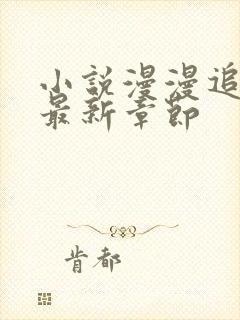 小說漫漫追
最新章節
肯都